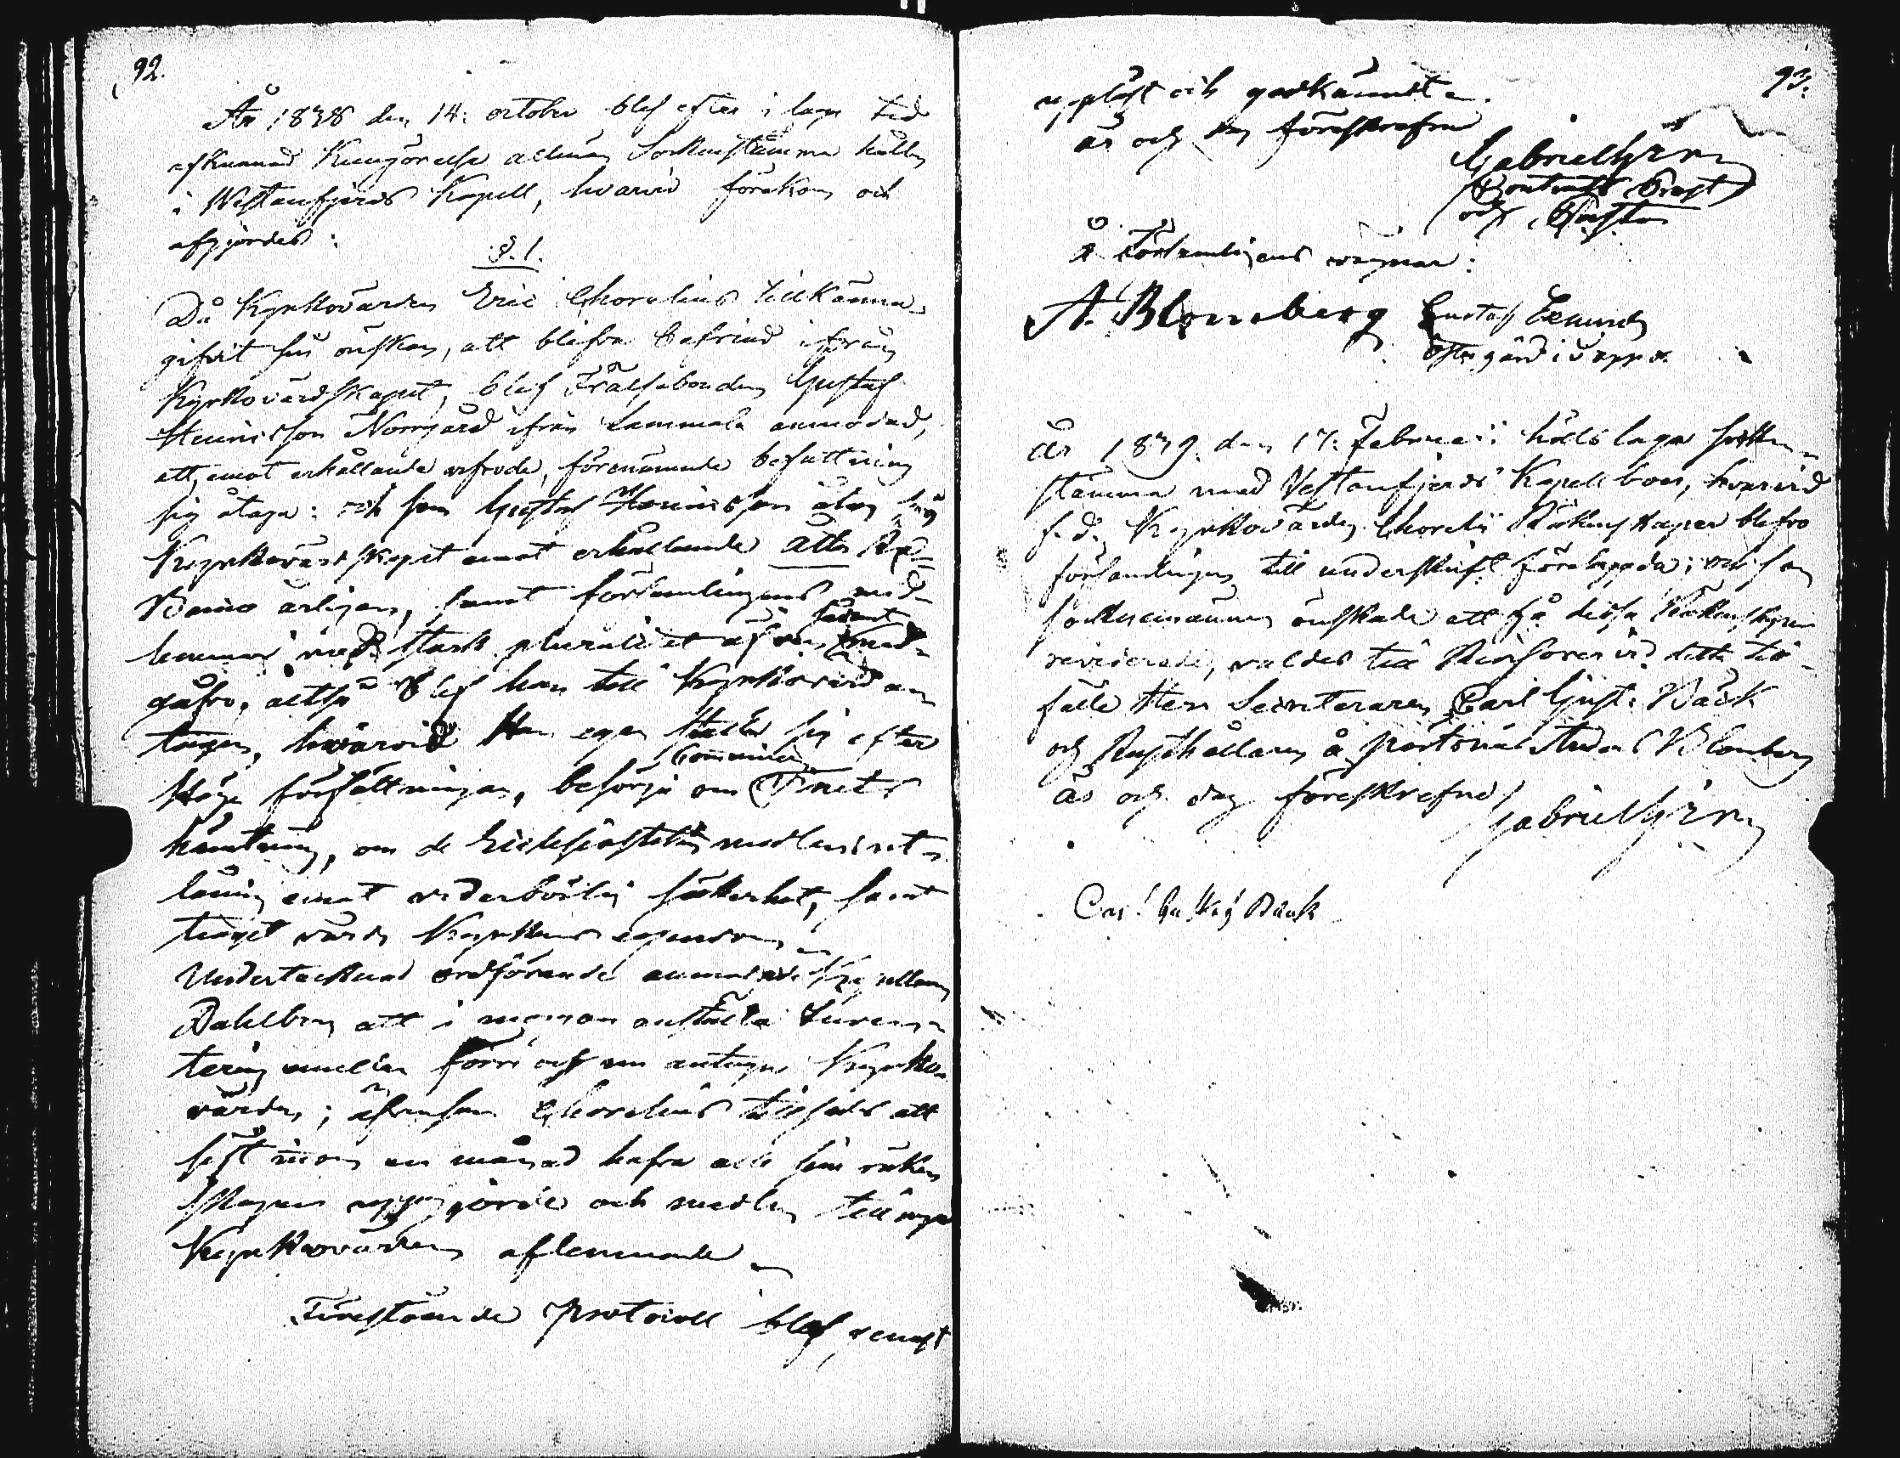 92.
År 1838 den 14: october blef efter i laga tid
afkunnad Kungörelse allmän Sockenstämma hållen
i Westanfjerds Kapell, hvarvid förekom och
afgjordes:
§. 1.
Då Kyrkovärden Eric Chorelius tillkänna
gifvit sin önskan, att blifva befriad ifrån
Kyrkovärdskapet, blef Frälsebonden Gustaf
Henricsson Norrgård ifrån Lammala anmodad,
att, emot erhållande arfvode, förenämnde befattning
sig åtaga: och som Gustaf Henricsson åtog sig
Kyrkovärdskapet emot erhållande åtta
årligen, samt församlingens med-
lemmar med stark pluralitet äfven sådant med-
gåfvo, altså blef han till Kyrkovärd an
tagen, hvarvid Han egen sig efter
Höga författningar, besörja om Communion Vinets
hämtning, om de medlens ut-
låning emot vederbörlig säkerhet, samt
troget vårda Kyrkans egendom
Undertecknad ordförande anmodade Capellan
Dahlberg att i morgon anställa Inven-
tering emellan förre och nu antagne Kyrko-
värden; äfvensom Chorelius tillsades att
sist inom en månad hafva alla sina räken
skaper uppgjorde och medlen till nya
Kyrkovärden aflemnade
Förestående Protocoll blef genast
93.
uppläst och godkändt
år och dag föreskrefne
Gabriel
Contracts Prost
och
å Församlingens vägnar:
A. Blomberg Gustaf
Östergård i
År 1839. den 17: Februarii hölls laga socken
stämma med Vestanfjerds Kapellboer, hvarvid
f. d. Kyrkovärden Chorelii Räkenskaper blefvo
församlingen till underskrift förelagda; och som
sockenemännen önskade att få dessa Räkenskaper
reviderade, valdes till Revisorer vid detta till-
fälle Herr Secreteraren Carl Gust: Bäck
och Rusthållaren å Pörtsnäs Anders Blomberg
år och dag föreskrefne/
Gabriel
Carl Gustaf Bäck